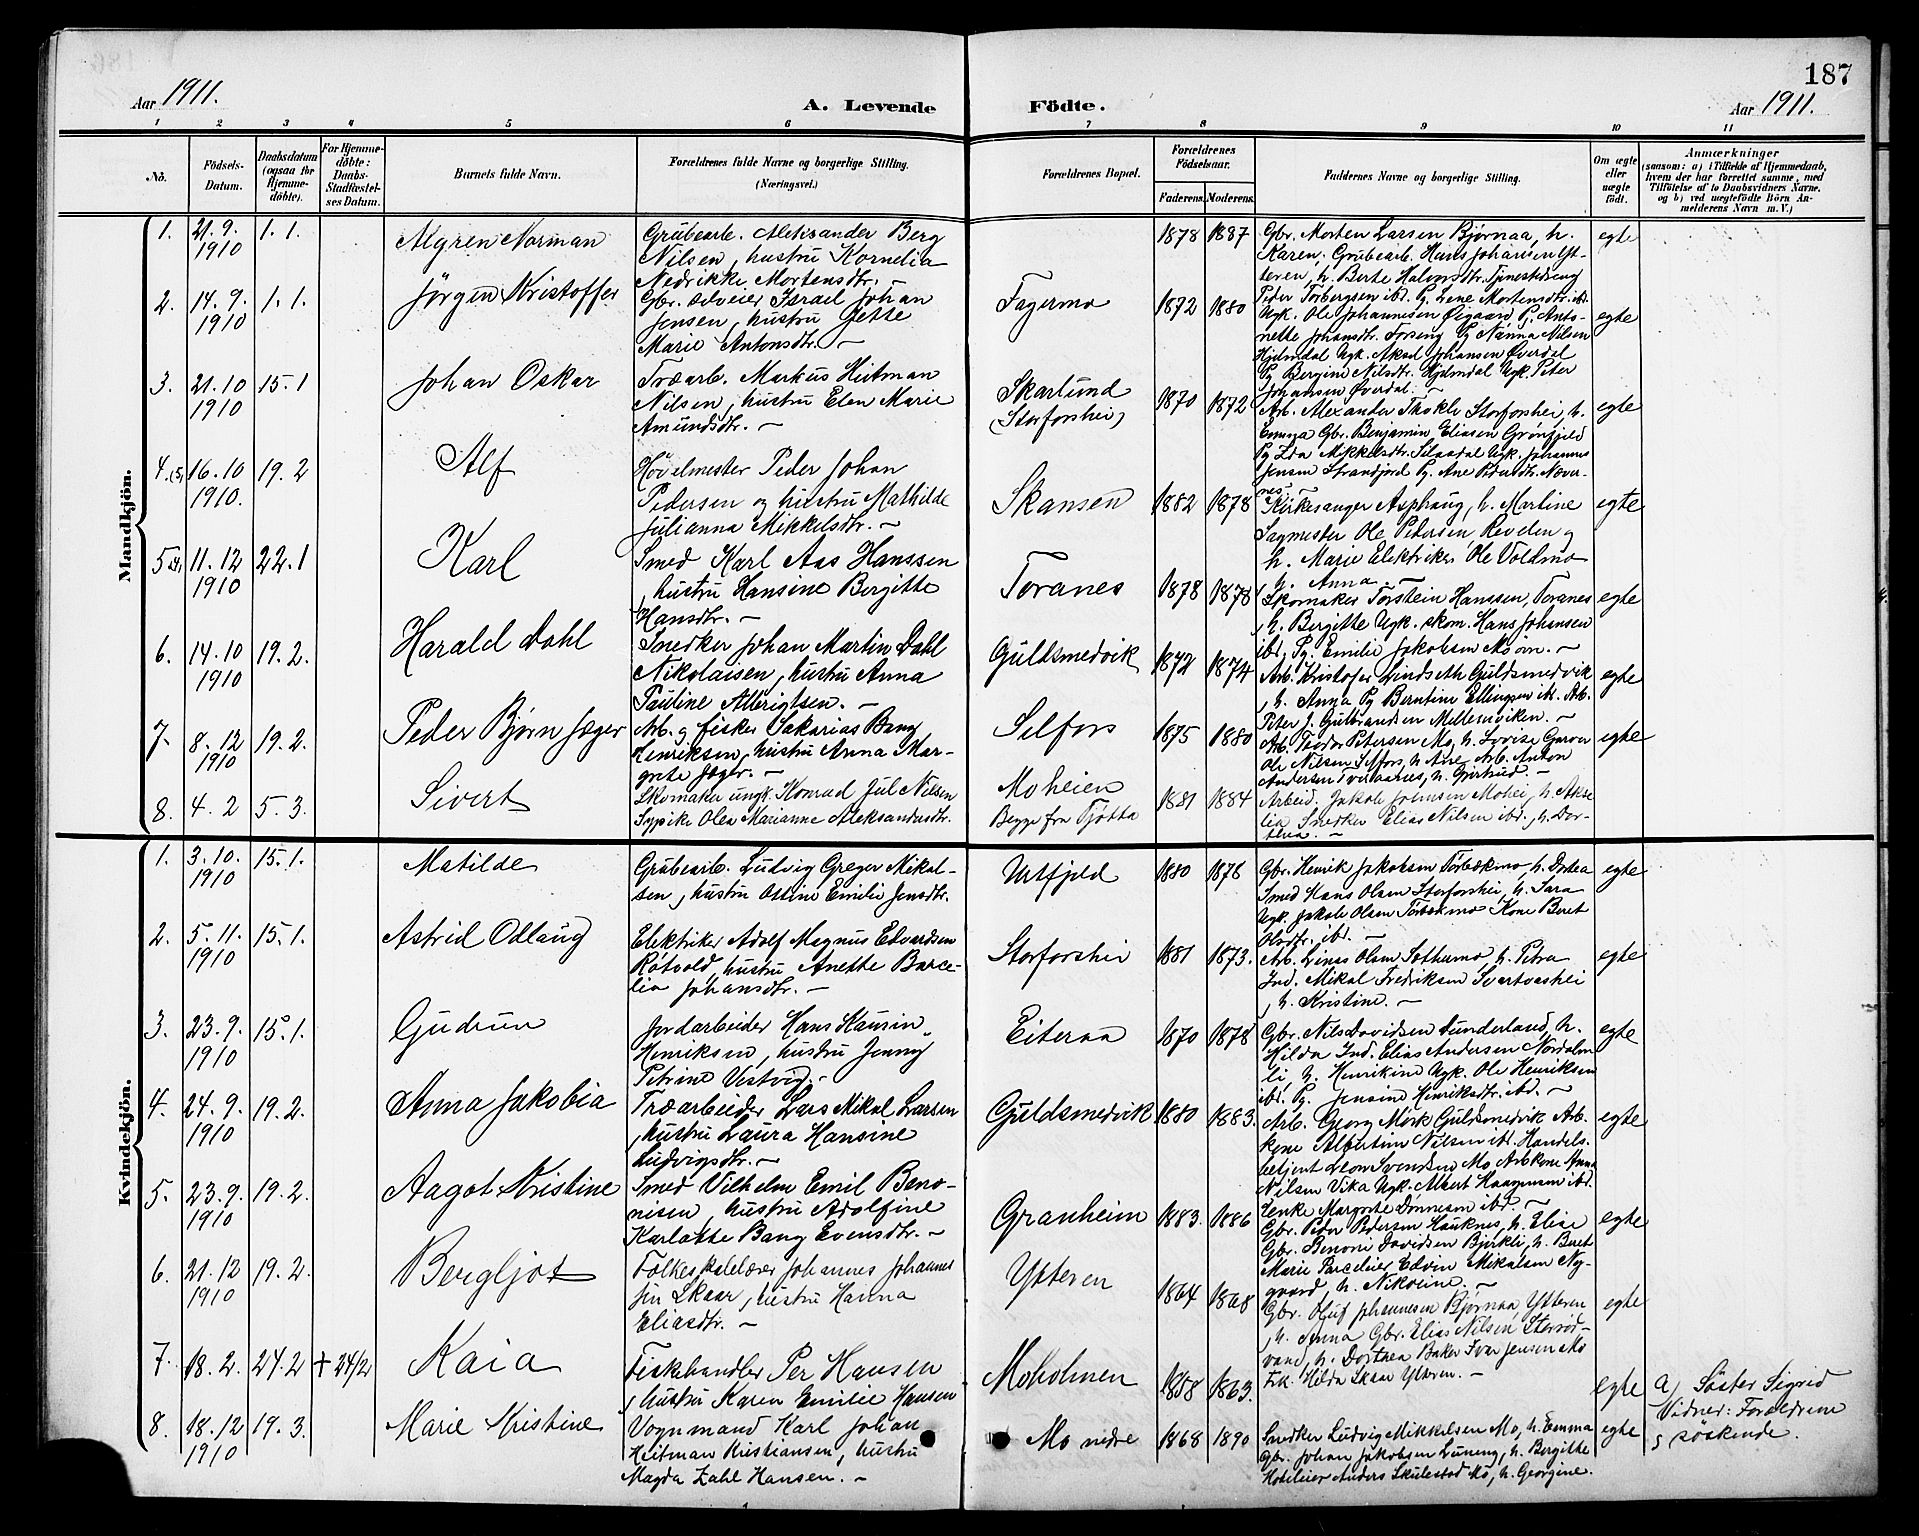 187
Aar 1911.
A. Levende Födte.
Aar 1911.
1 2 3 4 5 6 7 8 9 10 11
No.
Födsels-Datum.
Daabsdatum (ogsaa for Hjemmedöbte).
For Hjemmedöbte: Daabs-Stadfæstelses Datum.
Barnets fulde Navn.
Forældrenes fulde Navne og borgerlige Stilling. (Næringsvei.)
Forældrenes Bopæl.
Forældrenes Födselsaar.
Faderens. Moderens.
Faddernes Navne og borgerlige Stilling.
Om ægte eller uægte födt.
Anmærkninger
(saasom: a) i Tilfælde af Hjemmedaab, hvem der har forrettet samme, med Tilföielse af to Daabsvidners Navne, og b) ved uægtefödte Börn Anmelderens Navn m. V.)
Mandkjön.
1. 21.9. 1910 1.1. Algren Norman
Grubearb. Aleksander Berg
Nilsen, hustru Kornelia
Nedrikke Mortensdtr.
1878 1887
Gbr. Morten Larsen Bjørnaa, h.
Karen; Grubearb. Hans Johansen Yt-
teren, h. Berte Halvorsdtr. Tjenestedreng
Peder Torbergsen ibd. Pg. Lene Mortensdtr. ibd.
egte
2. 14.9. 1910 1.1. Jørgen Kristoffer
Gbr. Israel Johan
Jensen, hustru Jette
Marie Antonsdtr. —
Fagermo
1872 1880
Ugk. Ole Johannesen Øigaard Pg. Anto-
nette Johansdtr. Forseng Pg Nanna Nilsen
Hjelmdal Ugk. Aksel Johansen Øverdal
Pg Bergine Nilsdtr. Hjelmdal Ugk. Peter
Johansen Øverdal. —
egte
3. 21.10 1910 15.1 Johan Oskar
Træarb. Markus Hitman
Nilsen, hustru Elen Marie
Amundsdtr. —
Skarlund
(Storforshei)
1870 1872
Arb. Alexander Storforshei, h.
Emma Gbr. Benjamin Eliasen Grønfjeld
Pg Ida Mikkelsdtr. Ugk. Johannes
Jensen Strandjord Pg. Ane Pedersdtr. Never-
nes. —
egte
4. 16.10 1910. 19.2 Alf
Høvelmester Peder Johan
Pedersen og hustru Mathilde
Julianna Mikkelsdtr. —
Skansen
1882 1878
Kirkesanger Asphaug, h. Martine
Sagmester Ole Pedersen, Revelen og
h. Marie Elektriker Ole Voldmo
h. Anna. —
egte
5 11.12 1910 22.1 Karl
Smed Karl Aas Hanssen
, hustru Hansine Bergitte
Hansdtr. —
Toranes
1878 1878
Skomaker Torstein Hanssen, Toranes
, h. Bergitte Ugk. skom. Hans Johansen
ibd, Pg. Emilie Jakobsen Moen. —
egte
6. 14.10 1910 19.2. Harald Dahl
Snedker Johan Martin Dahl
Nikolaisen, hustru Anna
Pauline Albrigtsen. —
Guldsmedvik
1872 1874
Arb. Kristofer Lindseth Guldsmedvik
, h. Anna Pg Berntine Ellingsen ibd. Arb.
Peter J. Gulbrandsen Mellemviken. —
egte
7. 8.12 1910 19.2. Peder Bjørn Jæger
Arb. g fisker Sakarias Bang
Henriksen, hustru Anna Mar-
grete Jæger. —
Selfors
1875 1880
Arb. Teodor Petersen Mo, h. Lovise Garver
Ole Nilsen Selfors, h. Ane Arb. Anton
Andersen Tveraanes, h. Gjertrud. —
egte
8. 4.2 5.3. Sivert
Skomaker ungk. Konrad Jul Nilsen
Sypike Olea Marianne Aleksandersdtr.
Moheien
Begge fra Tjøtta
1881 1884
Arbeid. Jakob Johnsen Mohei, h. Akse
lia Snedker Elias Nilsen ibd., h. Dor-
tea. —
Kvindekjön.
1. 3.10. 1910 15.1. Matilde
Grubearb. Ludvig Greger Mikal-
sen, hustru Ottine Emilie Jensdtr.
Utfjeld
1880 1876
Gbr. Henrik Jakobsen Tørbækmo, h. Dortea
Smed Hans Olsen Storforshei, h. Sara
Ugk. Jakob Olsen Tørbækmo Kone Beret
Olsdtr. ibd. —
egte
2. 5.11. 1910 15.1. Astrid Odlaug
Elektriker Adolf Magnus Edvardsen
Røtvold, hustru Anette Barce-
lia Johansdtr. —
Storforshei
1881 1873.
Arb. Linas Olsen, h. Petra
Ind. Mikal Fredriksen Svartvashei
, h. Kristine. —
egte
3. 23.9. 1910 15.1. Gudrun
Jordarbeider Hans Hansin
Henriksen, hustru Jenny
Petrine Vestvig. —
Eiteraa
1870 1878
Gbr. Nils Davidsen Dunderland, h.
Hilda Ind. Elias Andersen Nordalm
li, h. Henrikine Ugk. Ole Henriksen
ibd. Pg. Jensine Henriksdtr. ibd. —
egte
4. 24.9. 1910 19.2. Anna Jakobia
Træarbeider Lars Mikal Larsen
, hustru Laura Hansine
Ludvigsdtr. —
Guldsmedvik
1880 1883.
Arb. Georg Mørk Guldsmedvik Arb.
kone Albertine Nilsen ibd. Handels-
betjent Leon Svendsen Mo Arb.kone Anna
Nilsen Vika Ugk. Albert Haagensen ibd.
Enke Margrete Dønnesen ibd. —
egte
5. 23.9. 1910 19.2. Aagot Kristine
Smed Vilhelm Emil Beno-
nisen, hustru Adolfine
Karlotte Bang Evensdtr. —
Granheim
1883. 1886
Gbr. Peder Pedersen Hauknes, h. Elise
Gbr. Benoni Davidsen Bjerkli, h. Beret
Marie Parcelleier Edvin Mikalsen Ny-
gaard, h. Nikoline. —
egte
6. 21.12 1910 19.2. Bergljot
Folkeskolelærer Johannes Johannes
sen Skaar, hustru Hanna
Eliasdtr. —
Ytteren
1864 1868
Gbr. Oluf Johannesen Bjørnaa, Ytteren
, h. Anna Gbr. Elias Nilsen
vand, h. Dorthea Baker Ivar Jensen Mo
Frk. Hilda Skaar Ytteren. —
egte
7. 18.2. 24.2 + 24/2 Kaia
Fiskehandler Per Hansen
, hustru Karen Emilie Hansen
Moholmen
1858 1863.
egte
a, Söster Sigrid
Vidner: Forældrene
g söskende.
8. 18.12 1910 19.3. Marie Kristine
Vognmand Karl Johan
Heitman Kristiansen, hustru
Magda Zahl Hansen. —
Mo nedre
1868 1890
Snedker Ludvig Mikkelsen Mo, h. Emma
Gbr. Johan Jakobsen Luneng, h. Bergitte
Hotelleier Anders Skulestad Mo, h. Georgine.
egte